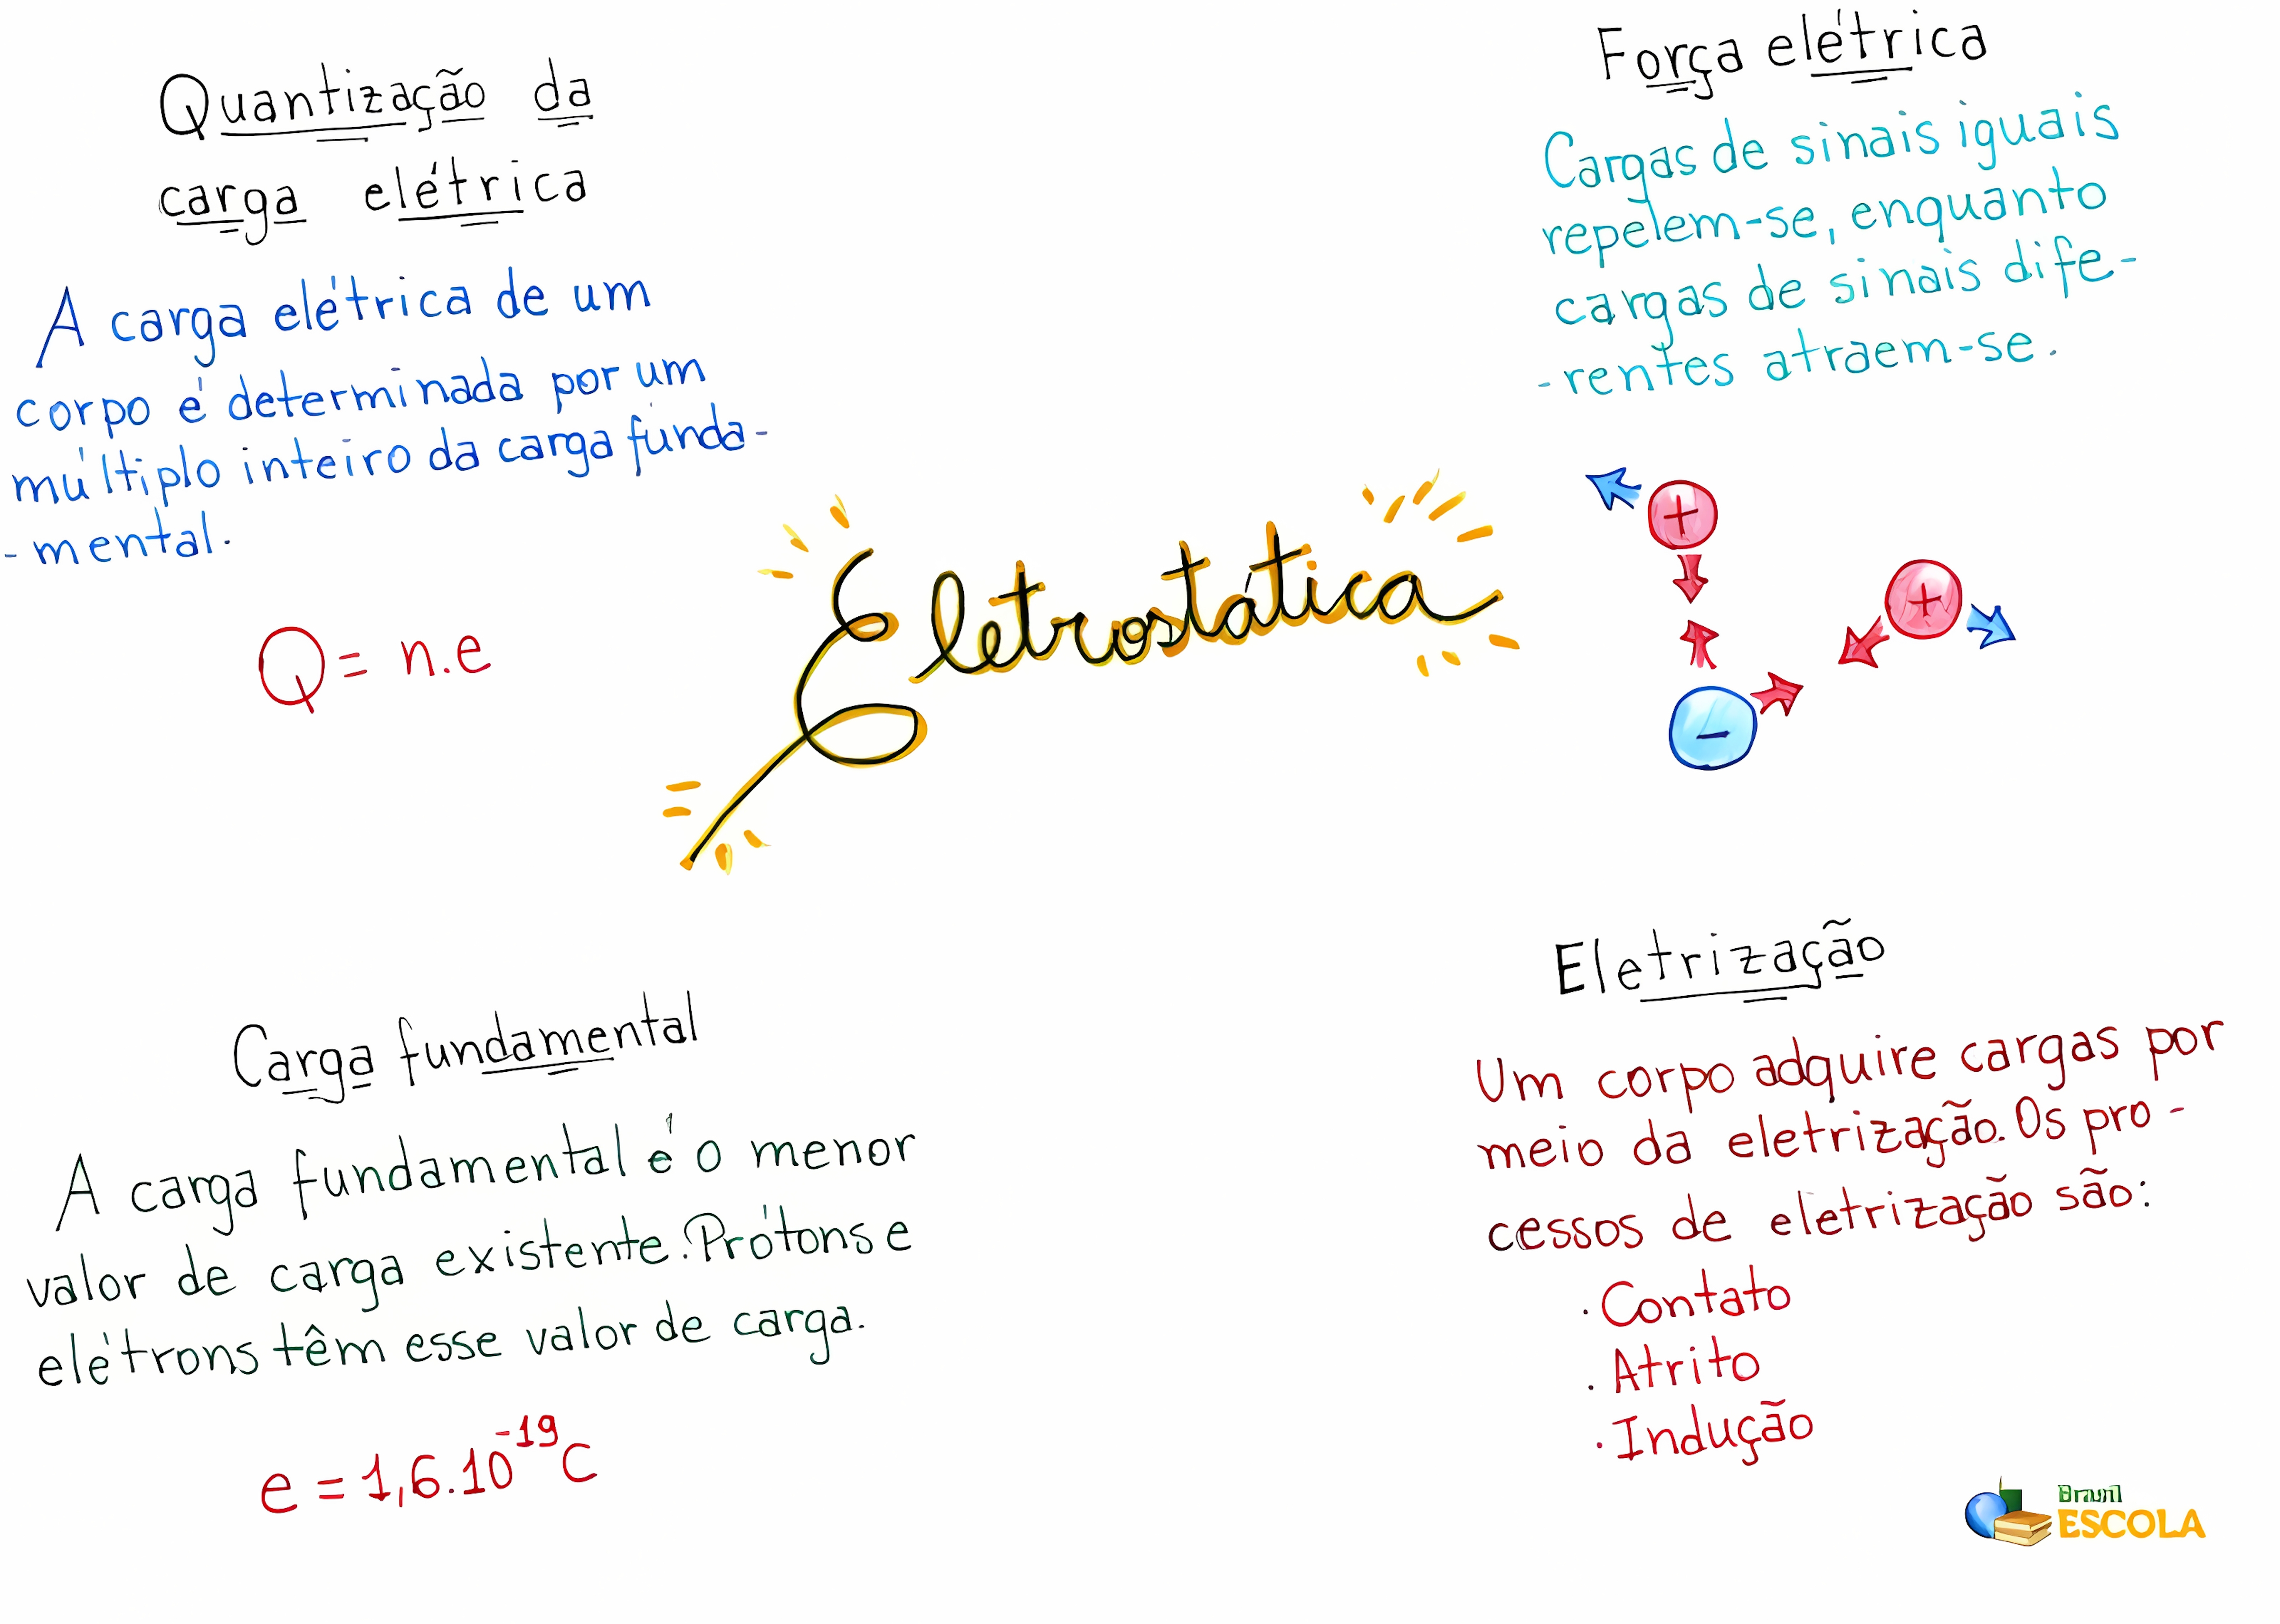 Quantização da
carga elétrica
A carga elétrica de um
corpo é determinada por um
múltiplo inteiro da carga funda-
-mental.
Q = n.e
Força elétrica
Cargas de sinais iguais
repelem-se, enquanto
cargas de sinais dife-
-rentes atraem-se.
+
+
-
Eletrostática
Carga fundamental
A carga fundamental é o menor
valor de carga existente. Prótons e
elétrons têm esse valor de carga.
e = 1,6.10⁻¹⁹C
Eletrização
Um corpo adquire cargas por
meio da eletrização. Os pro-
cessos de eletrização são:
. Contato
. Atrito
. Indução
Brasil
ESCOLA